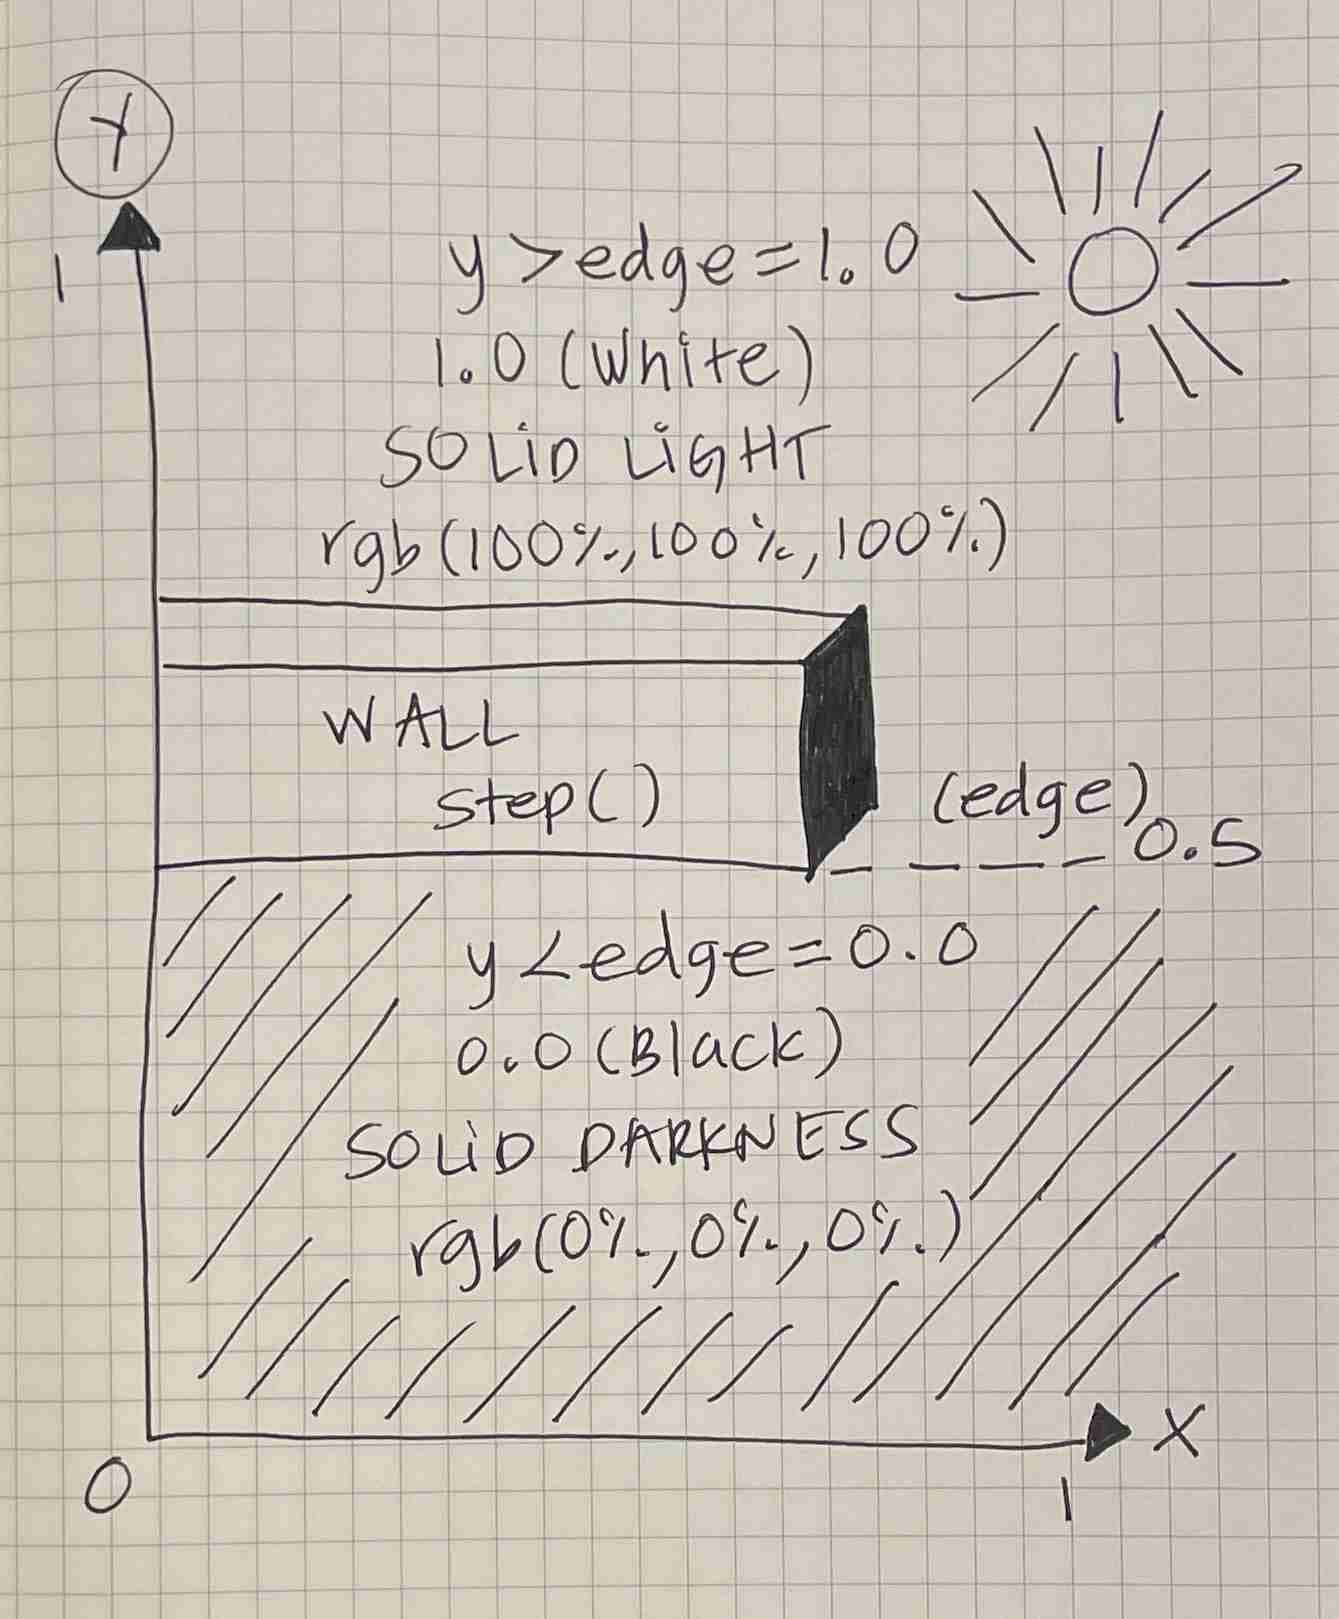 Y
1
y > edge = 1.0
1.0 (White)
SOLiD LiGHT
rgb (100%, 100%, 100%)
WALL
step()
(edge)
0.5
y < edge = 0.0
0.0 (Black)
SOLiD DARKNESS
rgb (0%, 0%, 0%)
X
0
1